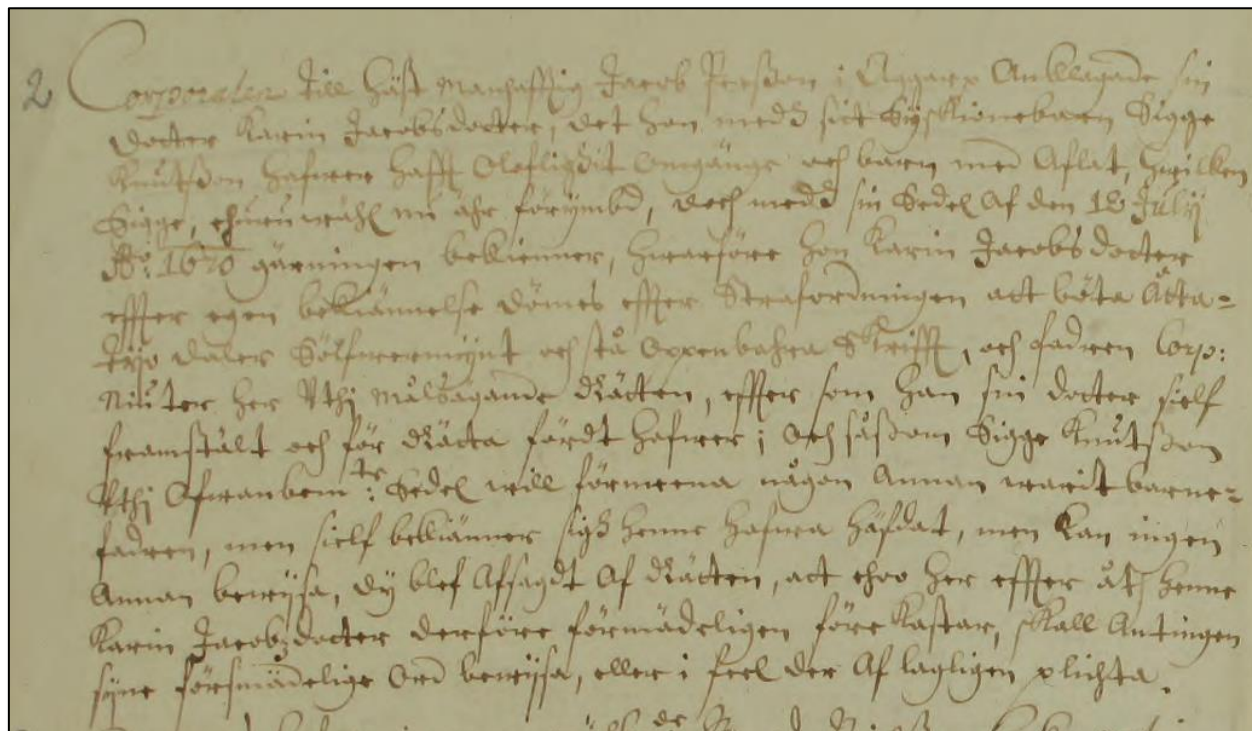 2 Corporalen till häst Manhafftig Jacob Persson i Anklagade sin
dotter Karin Jacobsdotter, det hon medh sitt Syskionebarn Sigge
Knutsson hafwer hafft Olofligdit Omgänge och barn med Aflat, hwilken
Sigge, ehuruwähl nu ähr förrymbd, doch medh sin Sedel Af den 18 July
Ao: 1676 gärningen bekienner, hwarföre hon Karin Jacobsdotter
effter egen bekiännelse dömes effter Straffordningen att böta Åtta-
tijo daler Sölfwermynt och stå Oppenbahra Skrifft, och fadren Corp:
Niuter her Vthi Målsägande Rätten, effter som han sin dotter sielf
framstält och för Rätta fördt hafwer; Och såsom Sigge Knutsson
Vthj Ofwanbem:te Sedel will förmena någon Annan warit barne-
fadren, men sielf bekiänner sigh henne hafwa häfdat, men kan ingen
Annan bewijsa, dy blef Afsagdt Af Rätten, att ehoo her effter åt henne
Karin Jacobzdotter derföre försmädeligen före kastar, skall Antingen
syne försmädelige Ord bewijsa, eller i feel der Af lagligen plichta.